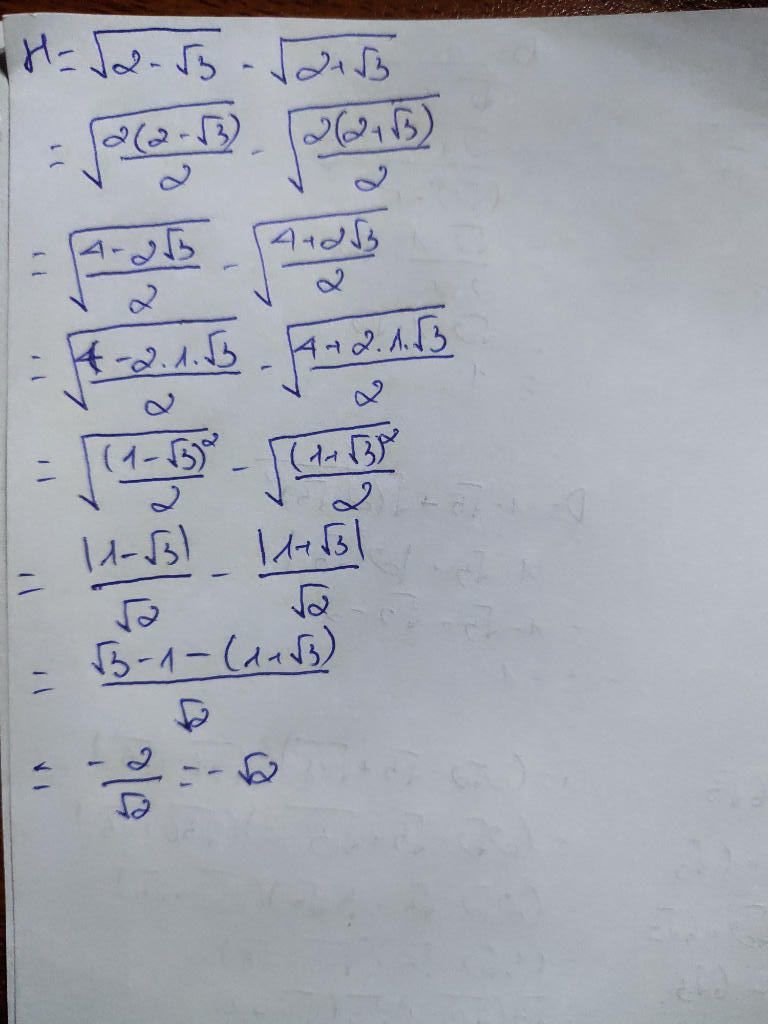 H = √(2 - √3) - √(2 + √3)
= √(2(2 - √3)/2) - √(2(2 + √3)/2)
= √((4 - 2√3)/2) - √((4 + 2√3)/2)
= √((4 - 2.1.√3)/2) - √((4 + 2.1.√3)/2)
= √((1 - √3)²/2) - √((1 + √3)²/2)
= |1 - √3|/√2 - |1 + √3|/√2
= (√3 - 1 - (1 + √3))/√2
= -2/√2 = - √2